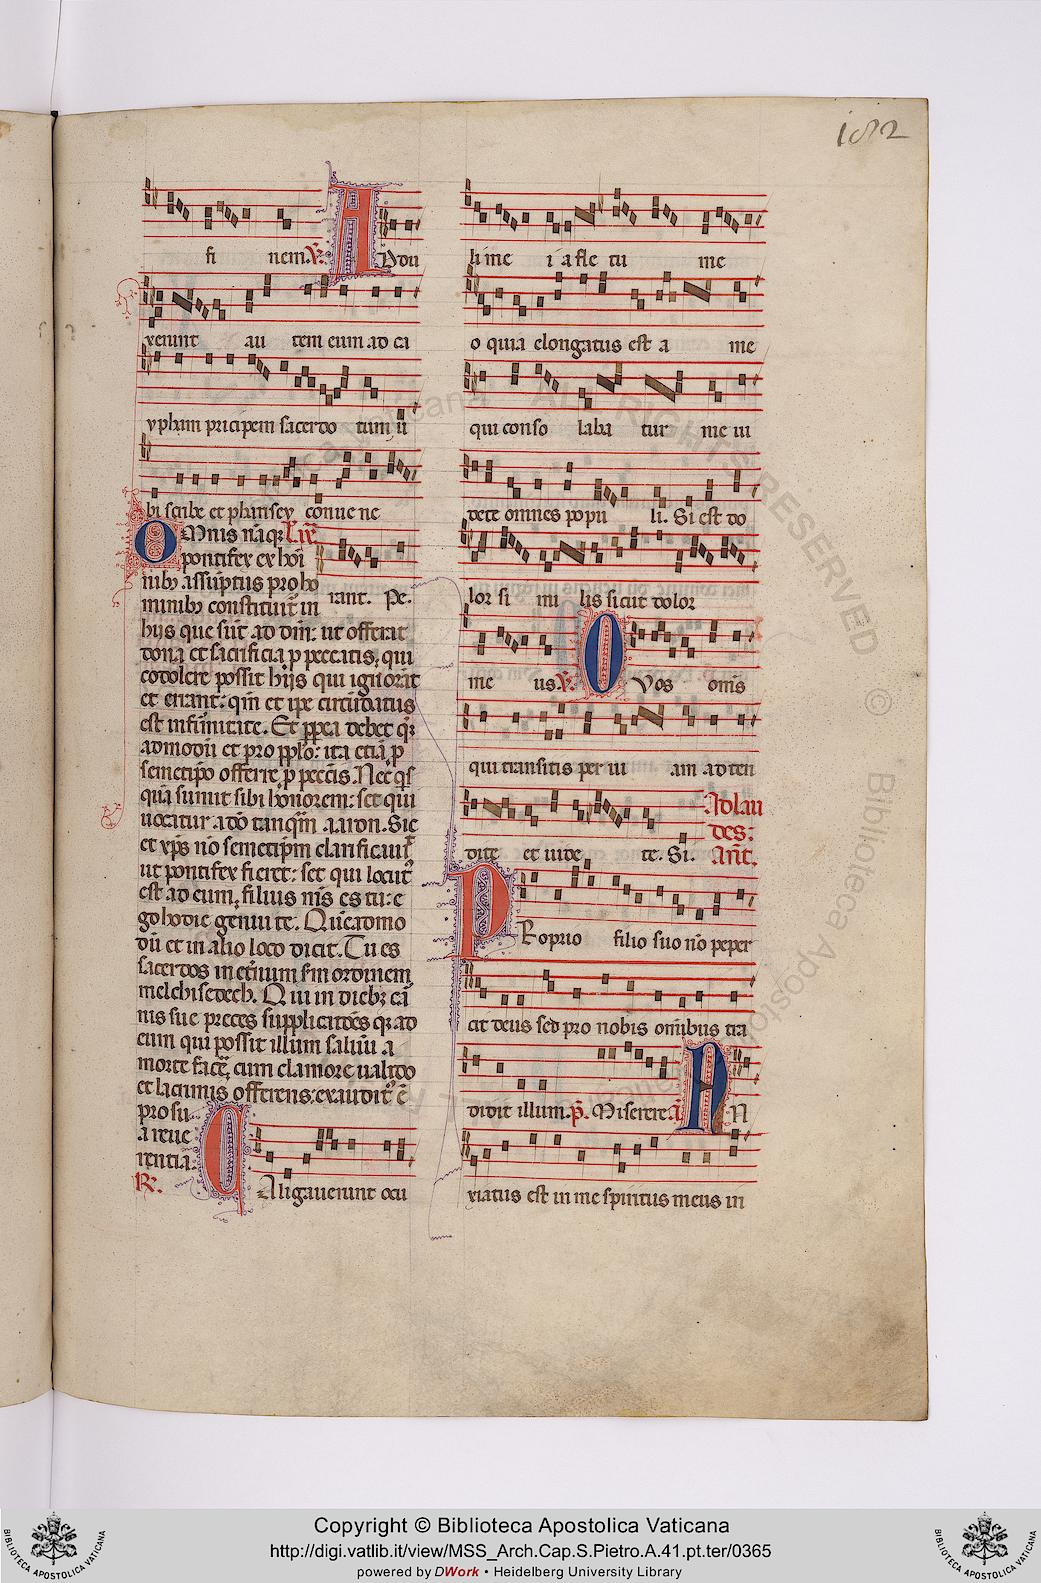 182
fi nem. ℣. A Ddu
xerunt au tem eum ad ca
ypham principem sacerdo tum u
bi scribe et pharisey conue ne
OMnis nāqȝ
pontifex ex hoī
nibȝ assūptus pro ho
minibȝ constituit̄ in rant. Pe.
hijs que sūt ad dm̄: ut offerat
dona et sacrificia p peccatis, qui
cōdolere possit hijs qui ignorāt
et errant: qm̄ et ip̄e circūdatus
est infirmitate. Et ppea debet q̄
admodū et pro pplo: ita etiā p
semetip̄o offerre p pecc̄is. Nec qs
quā sumit sibi honorem: set qui
uocatur a dō tanqm̄ aaron. Sic
et xp̄s nō semetip̄m clarificauit
ut pontifex fieret: set qui locut᷒
est ad eum, filius m̄s es tu: e
go hodie genui te. Quēadmo
dū et in alio loco dicit. Tu es
sacerdos in et̄num scdm ordinem
melchisedech. Qui in diebȝ car
nis sue preces supplicatōes qȝ ad
eum qui possit illum saluū a
morte facē, cum clamore ualido
et lacrimis offerens, exaudit᷒ ē
pro su
a reue
rentia.
℟. CAligauerunt ocu
li me i a fle tu me
o quia elongatus est a me
qui conso laba tur me ui
dete omnes popu li. Si est do
lor si mi lis sicut dolor
me us. ℣. O Vos om̄s
qui transitis per ui am adten
dite et uide te. Si. Ad lau
des:
Añt.
PRoprio filio suo nō peper
cit deus sed pro nobis om̄ibus tra
didit illum. p̄. Miserere. a. AN
xiatus est in me spiritus meus in
ALL RIGHTS RESERVED
© Biblioteca Apostolica Vaticana
Copyright © Biblioteca Apostolica Vaticana
http://digi.vatlib.it/view/MSS_Arch.Cap.S.Pietro.A.41.pt.ter/0365
powered by DWork • Heidelberg University Library
BIBLIOTECA APOSTOLICA VATICANA
BIBLIOTECA APOSTOLICA VATICANA